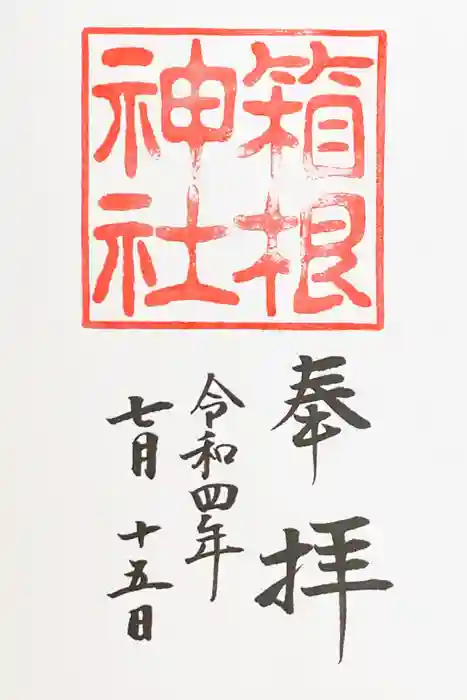 箱根
神社
奉拝
令和四年
七月十五日